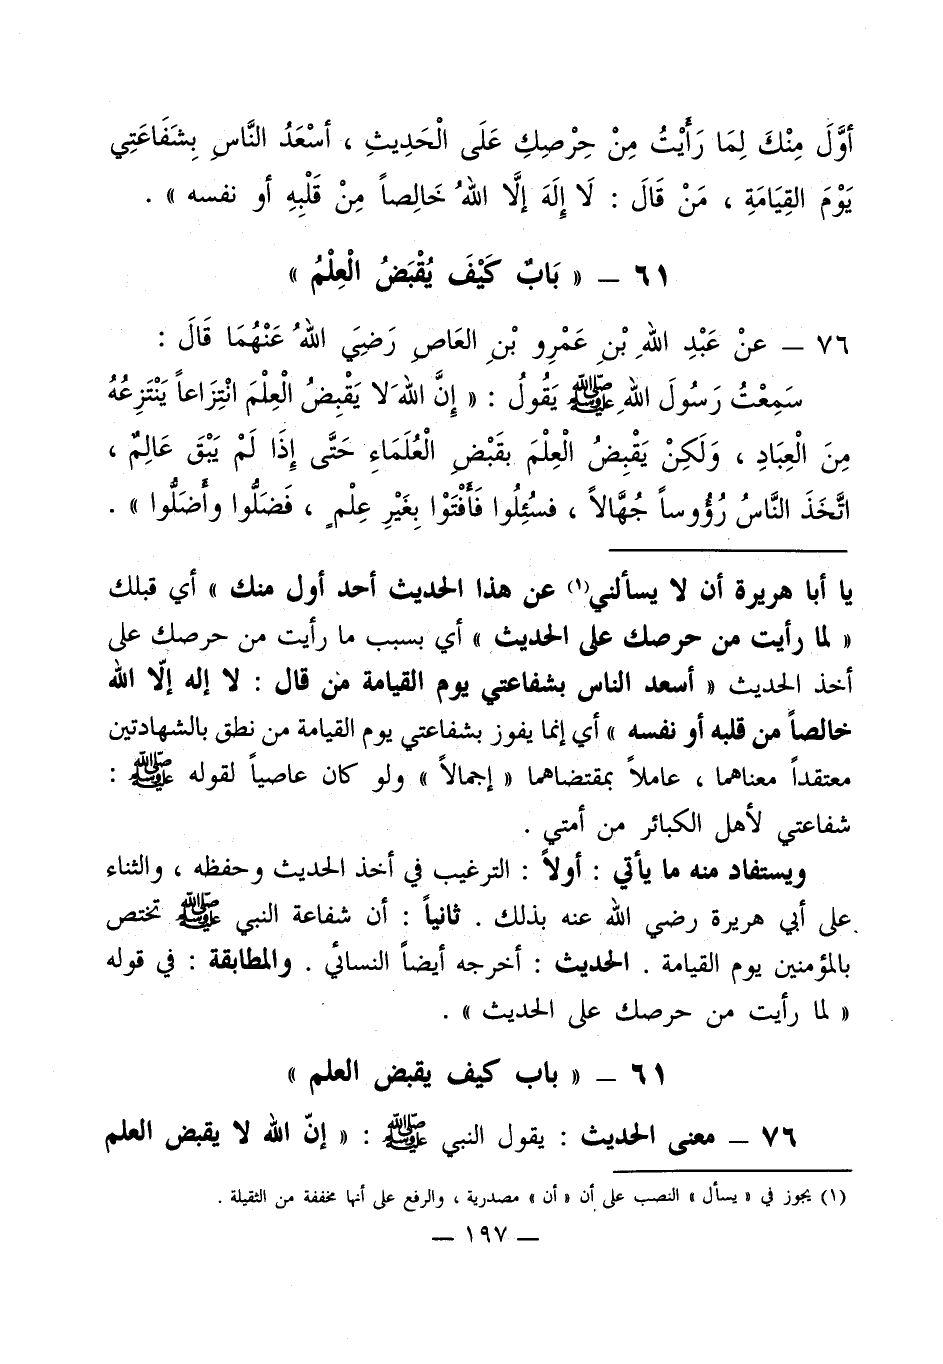 أَوَّلَ مِنْكَ لِمَا رَأَيْتُ مِنْ حِرْصِكِ عَلَى الْحَدِيثِ ، أَسْعَدُ النَّاسِ بِشَفَاعَتِي
يَوْمَ القِيَامَةِ ، مَنْ قَالَ : لَا إِلَهَ إِلَّا اللهُ خَالِصاً مِنْ قَلْبِهِ أو نفسه » .
٦١ – « بَابٌ كَيْفَ يُقْبَضُ الْعِلْمُ »
٧٦ – عنْ عَبْدِ اللهِ بْنِ عَمْرِو بْنِ العَاصِ رَضِيَ اللهُ عَنْهُمَا قَالَ :
سَمِعْتُ رَسُولَ اللهِ ﷺ يَقُولُ : « إِنَّ اللهَ لا يَقْبِضُ الْعِلْمَ انْتِزَاعاً يَنْتَزِعُهُ
مِنَ الْعِبَادِ ، وَلَكِنْ يَقْبِضُ الْعِلْمَ بِقَبْضِ الْعُلَمَاءِ حَتَّى إِذَا لَمْ يَبْقَ عَالِمٌ ،
اتَّخَذَ النَّاسُ رُؤُوساً جُهَّالاً ، فسُئِلُوا فَأَفْتَوْا بِغَيْرِ عِلْمٍ ، فَضَلُّوا وأَضَلُّوا » .
يا أبا هريرة أن لا يسألني(١) عن هذا الحديث أحد أول منك » أي قبلك
« لما رأيت من حرصك على الحديث » أي بسبب ما رأيت من حرصك على
أخذ الحديث « أسعد الناس بشفاعتي يوم القيامة من قال : لا إله إلّا الله
خالصاً من قلبه أو نفسه » أي إنما يفوز بشفاعتي يوم القيامة من نطق بالشهادتين
معتقداً معناهما ، عاملاً بمقتضاهما « إجمالاً » ولو كان عاصياً لقوله ﷺ :
شفاعتي لأهل الكبائر من أمتي .
ويستفاد منه ما يأتي : أولاً : الترغيب في أخذ الحديث وحفظه ، والثناء
على أبي هريرة رضي الله عنه بذلك . ثانياً : أن شفاعة النبي ﷺ تختص
بالمؤمنين يوم القيامة . الحديث : أخرجه أيضاً النسائي . والمطابقة : في قوله
« لما رأيت من حرصك على الحديث » .
٦١ – « باب كيف يقبض العلم »
٧٦ – معنى الحديث : يقول النبي ﷺ : « إنّ الله لا يقبض العلم
(١) يجوز في « يسأل » النصب على أن « أن » مصدرية ، والرفع على أنها مخففة من الثقيلة .
– ١٩٧ –